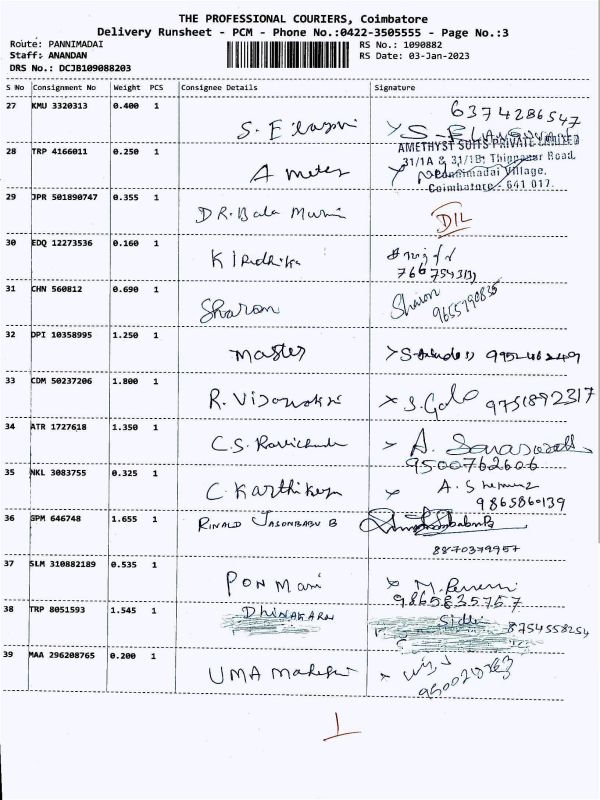 THE PROFESSIONAL COURIERS, Coimbatore
Delivery Runsheet - PCM - Phone No.:0422-3505555 - Page No.:3
Route: PANNIMADAI
RS No.: 1090882
Staff: ANANDAN
RS Date: 03-Jan-2023
DRS No.: DCJB109088203
S No Consignment No Weight PCS Consignee Details Signature
27 KMU 3320313 0.400 1
6374286547
AMETHYST SUITS PRIVATE LIMITED
31/1A & 31/1B, Thippanar Road,
Pannimadai Village,
Coimbatore - 641 017.
28 TRP 4166011 0.250 1
29 JPR 501890747 0.355 1 DR. Bala Murni
D/L
30 EDQ 12273536 0.160 1
31 CHN 560812 0.690 1 Sharon Sharon
9655790835
32 DPI 10358995 1.250 1 Master
33 CDM 50237206 1.800 1 9751892317
34 ATR 1727618 1.350 1 A. Saraswathi
9500762606
35 NKL 3083755 0.325 1 C. Karthikeyn
9865860139
36 GPM 646748 1.655 1 RINALD JASONBABU B
8870379957
37 SLM 310882189 0.535 1 PON Mani
9865835757
38 TRP 8051593 1.545 1 DHINAKARN
8754558254
39 MAA 296208765 0.200 1 UMA